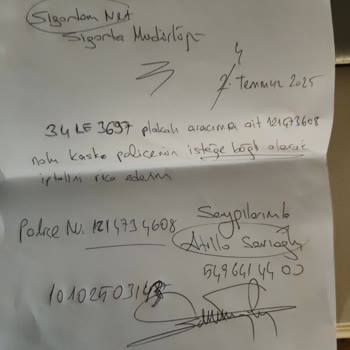 Sigortam Net
Sigorta Müdürlüğü
4
7 Temmuz 2025
34 LE 3697 plakalı aracıma ait 121473608
nolu kasko poliçenin isteğe bağlı olarak
iptalini rica ederim
Saygılarımla
Poliçe No. 1214734608
Atilla Sarıoğlu
549 641 44 00
1010250314